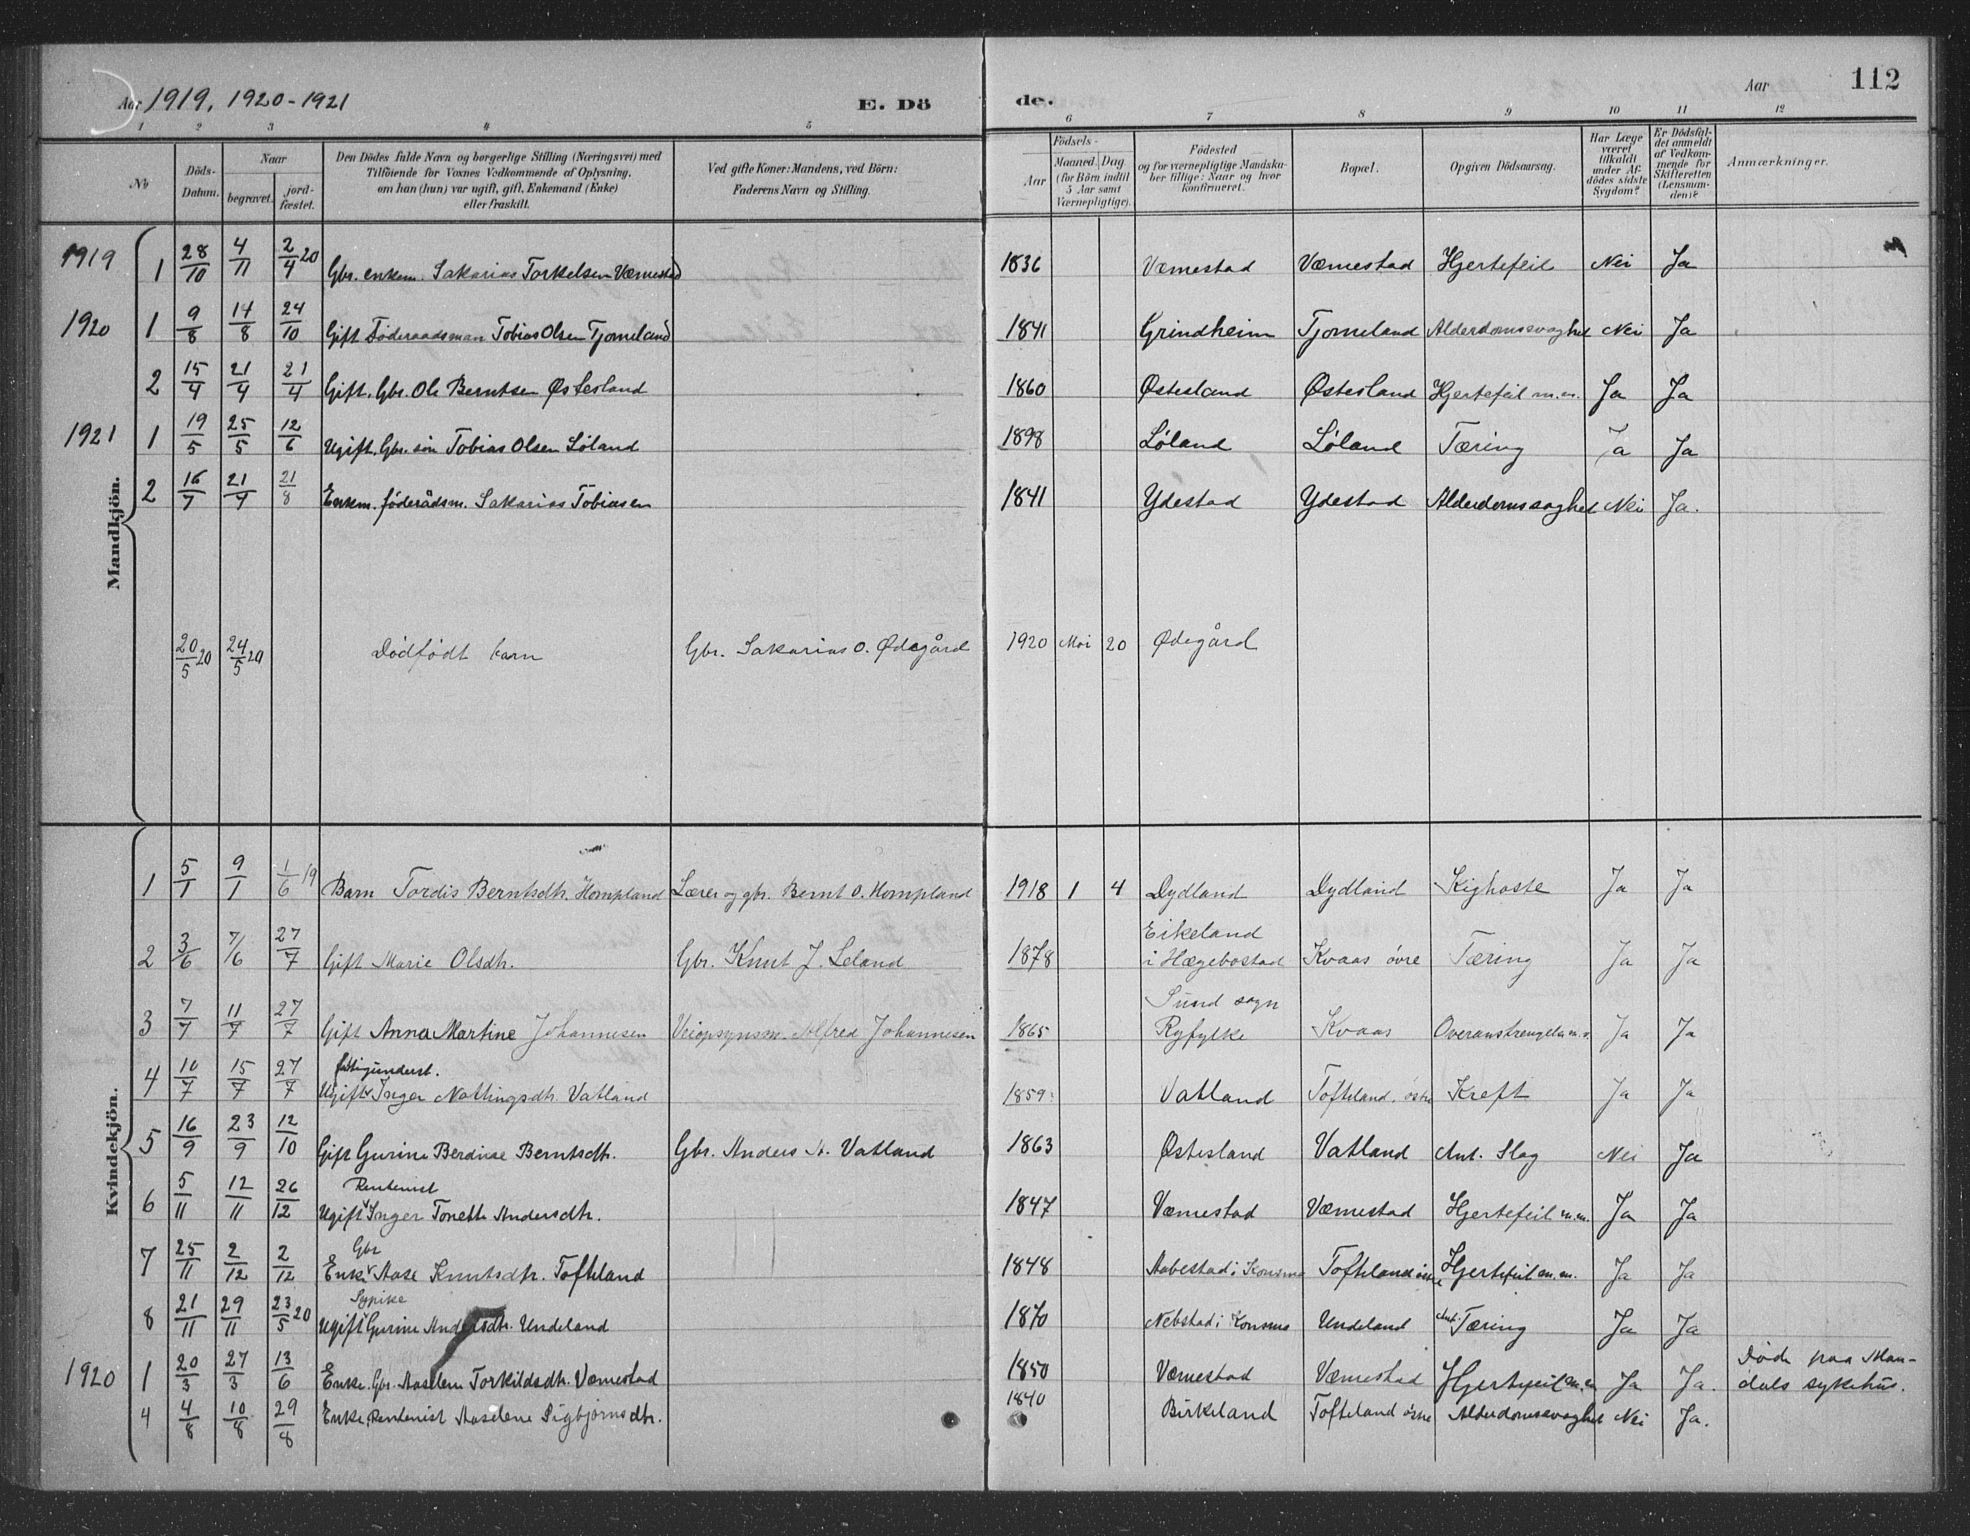 Aar 1919, 1920-1921 E. Dö de. Aar 112
1 2 3 4 5 6 7 8 9 10 11 12
No
Döds-Datum.
Naar
begravet.
jord-fæstet.
Den Dödes fulde Navn og borgerlige Stilling (Næringsvei) med
Tilföiende for Voxnes Vedkommende af Oplysning,
om han (hun) var ugift, gift, Enkemand (Enke)
eller fraskilt.
Ved gifte Koner: Mandens, ved Börn:
Faderens Navn og Stilling.
Födsels-
Aar
Maaned. Dag
(for Börn indtil
5 Aar samt
Værnepligtige).
Födested
og for værnepligtige Mandska-
ber tillige: Naar og hvor
konfirmeret.
Bopæl.
Opgiven Dödsaarsag.
Har Læge
været
tilkaldt
under Af-
dödes sidste
Sygdom?
Er Dödsfal-
det anmeldt
af Vedkom-
mende for
Skifteretten
(Lensman-
den)?
Anmærkninger.
Mandkjön.
1919 1 28/10 4/11 2/4 20 Gbr. enkem. Sakarias Torkelsen Væmestad 1836 Væmestad Væmestad Hjertefeil Nei Ja
1920 1 9/8 14/8 24/10 Gift Føderaadsman Tobias Olsen Tjomeland 1841 Grindheim Tjomeland Alderdomssvaghet Nei Ja
2 15/4 21/4 21/4 Gift. Gbr. Ole Berntsen Østesland 1860 Østesland Østesland Hjertefeil m.m. Ja Ja
1921 1 19/5 25/5 12/6 Ugift. Gbr. søn Tobias Olsen Løland 1898 Løland Løland Tæring Ja Ja
2 16/7 21/7 21/8 Enkem. føderådsm. Sakarias Tobiasen 1841 Ydestad Ydestad Alderdomssvaghet Nei Ja.
20/5 20 24/5 20 Dødfødt barn Gbr. Sakarias O. Ødegård 1920 Mai 20 Ødegård
Kvindekjön.
1 5/1 9/1 1/6 19 Barn Tordis Berntsdtr. Hompland Lærer og gbr. Bernt O. Hompland 1918 1 4 Dydland Dydland Kighoste Ja Ja
Eikeland
2 3/6 7/6 27/7 Gift Marie Olsdtr. Gbr. Knut J. Leland 1878 i Hægebostad Kvaas øvre Tæring Ja Ja
Sund sogn
3 7/7 11/7 27/7 Gift Anna Martine Johannesen Veiopsynsm. Alfred Johannesen 1865 Ryfylke Kvaas Overanstrengelse m.v. Ja Ja
fattigunderst.
4 10/7 15/7 27/7 Ugift Inger Nottingsdtr. Vatland 1859 Vatland Tofteland. østre Kreft Ja Ja
5 16/9 23/9 12/10 Gift Gurine Berdine Berntsdtr. Gbr. Anders A. Vatland 1863 Østesland Vatland Ant. Slag Nei Ja
Rentenist
6 5/11 12/11 26/12 Ugift Inger Tonette Andersdtr. 1847 Væmestad Væmestad Hjertefeil m.m. Ja Ja
Gbr
7 25/11 2/12 2/12 Enke Aase Knutsdtr. Tofteland 1848 Aabestad i Konsmo Tofteland østre Hjertefeil m.m. Ja Ja
Sypike
8 21/11 29/11 23/5 20 Ugift Gurine Andersdtr. Undeland 1870 Nebstad i Konsmo Undeland Ant. Tæring Ja Ja
1920 1 20/3 27/3 13/6 Enke. Gbr. Aaselene Torkildsdtr. Væmestad 1850 Væmestad Væmestad Hjertefeil m.m. Ja Ja. Døde paa Man-
dals sykehus.
4 4/8 10/8 29/8 Enke. Rentenist Aaselene Sigbjørnsdtr. 1840 Birkeland Tofteland østre Alderdomssvaghet Nei Ja.